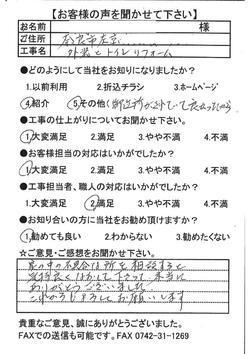 【お客様の声を聞かせて下さい】
お名前 様
ご住所 奈良市左京
工事名 外装とトイレリフォーム
●どのようにして当社をお知りになりましたか?
1.以前利用 2.折込チラシ 3.ホームページ
4.紹介 5.その他(
●工事の仕上がりについてお聞かせ下さい。
1.大変満足 2.満足 3.やや不満 4.不満
●お客様担当の対応はいかがでしたか?
1.大変満足 2.満足 3.やや不満 4.不満
●工事担当者、職人の対応はいかがでしたか?
1.大変満足 2.満足 3.やや不満 4.不満
●お知り合いの方に当社をお勧め頂けますか?
1.勧めても良い 2.わからない 3.勧めたくない
☆ご意見・ご感想をお聞かせ下さい。
家の中の不具合な所を相談すると
気持良く はずして下さって、本当に
ありがとうございました
これからもよろしくお願いします
貴重なご意見、誠にありがとうございました。
FAXでの送信も可能です。FAX 0742-31-1269